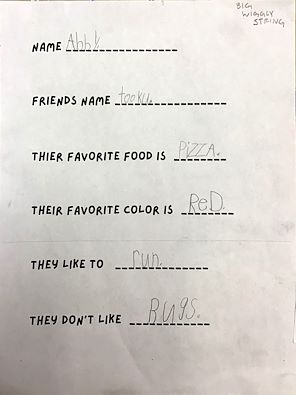 BIG
WIGGLY
STRING
NAME Ahhk
FRIENDS NAME tooku.
THIER FAVORITE FOOD IS PiZZA.
THEIR FAVORITE COLOR IS ReD.
THEY LIKE TO run.
THEY DON'T LIKE BUgS.